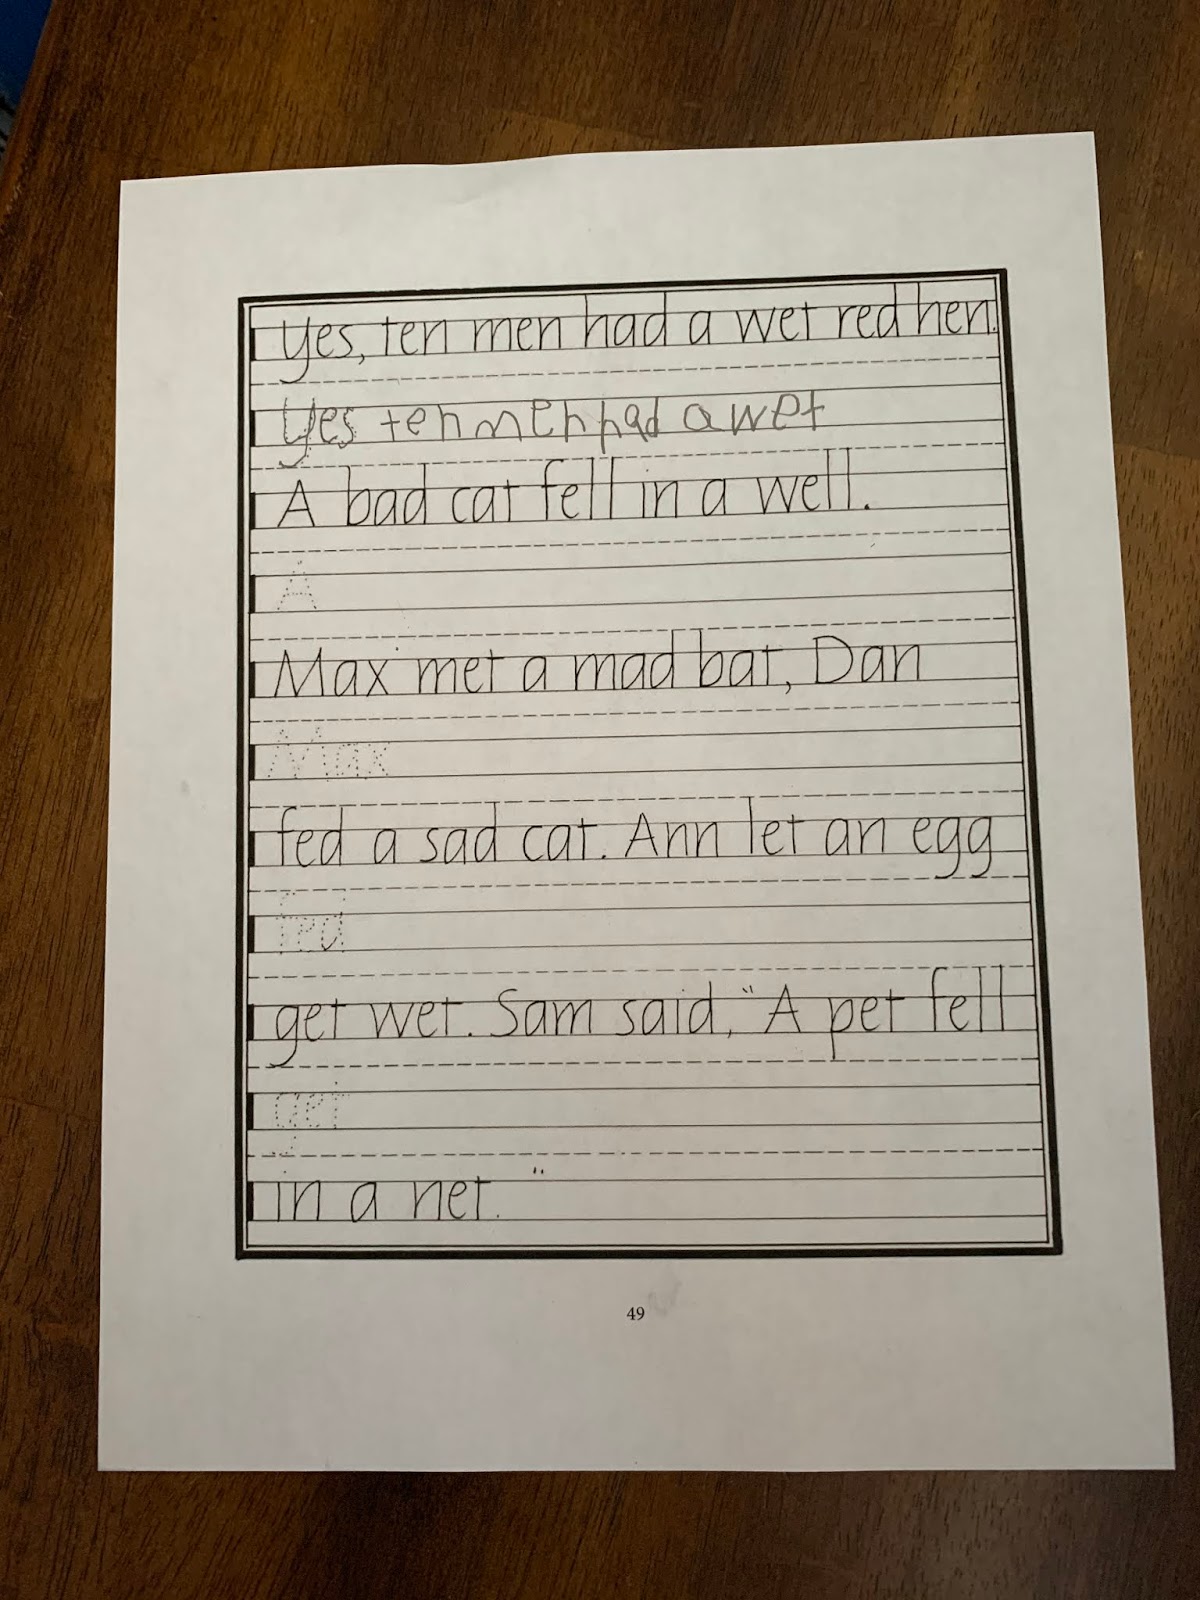 Yes, ten men had a wet red hen.
Yes ten men had a wet
A bad cat fell in a well.
A
Max met a mad bat, Dan
Max
fed a sad cat. Ann let an egg
fed
get wet. Sam said, "A pet fell
get
in a net."
49